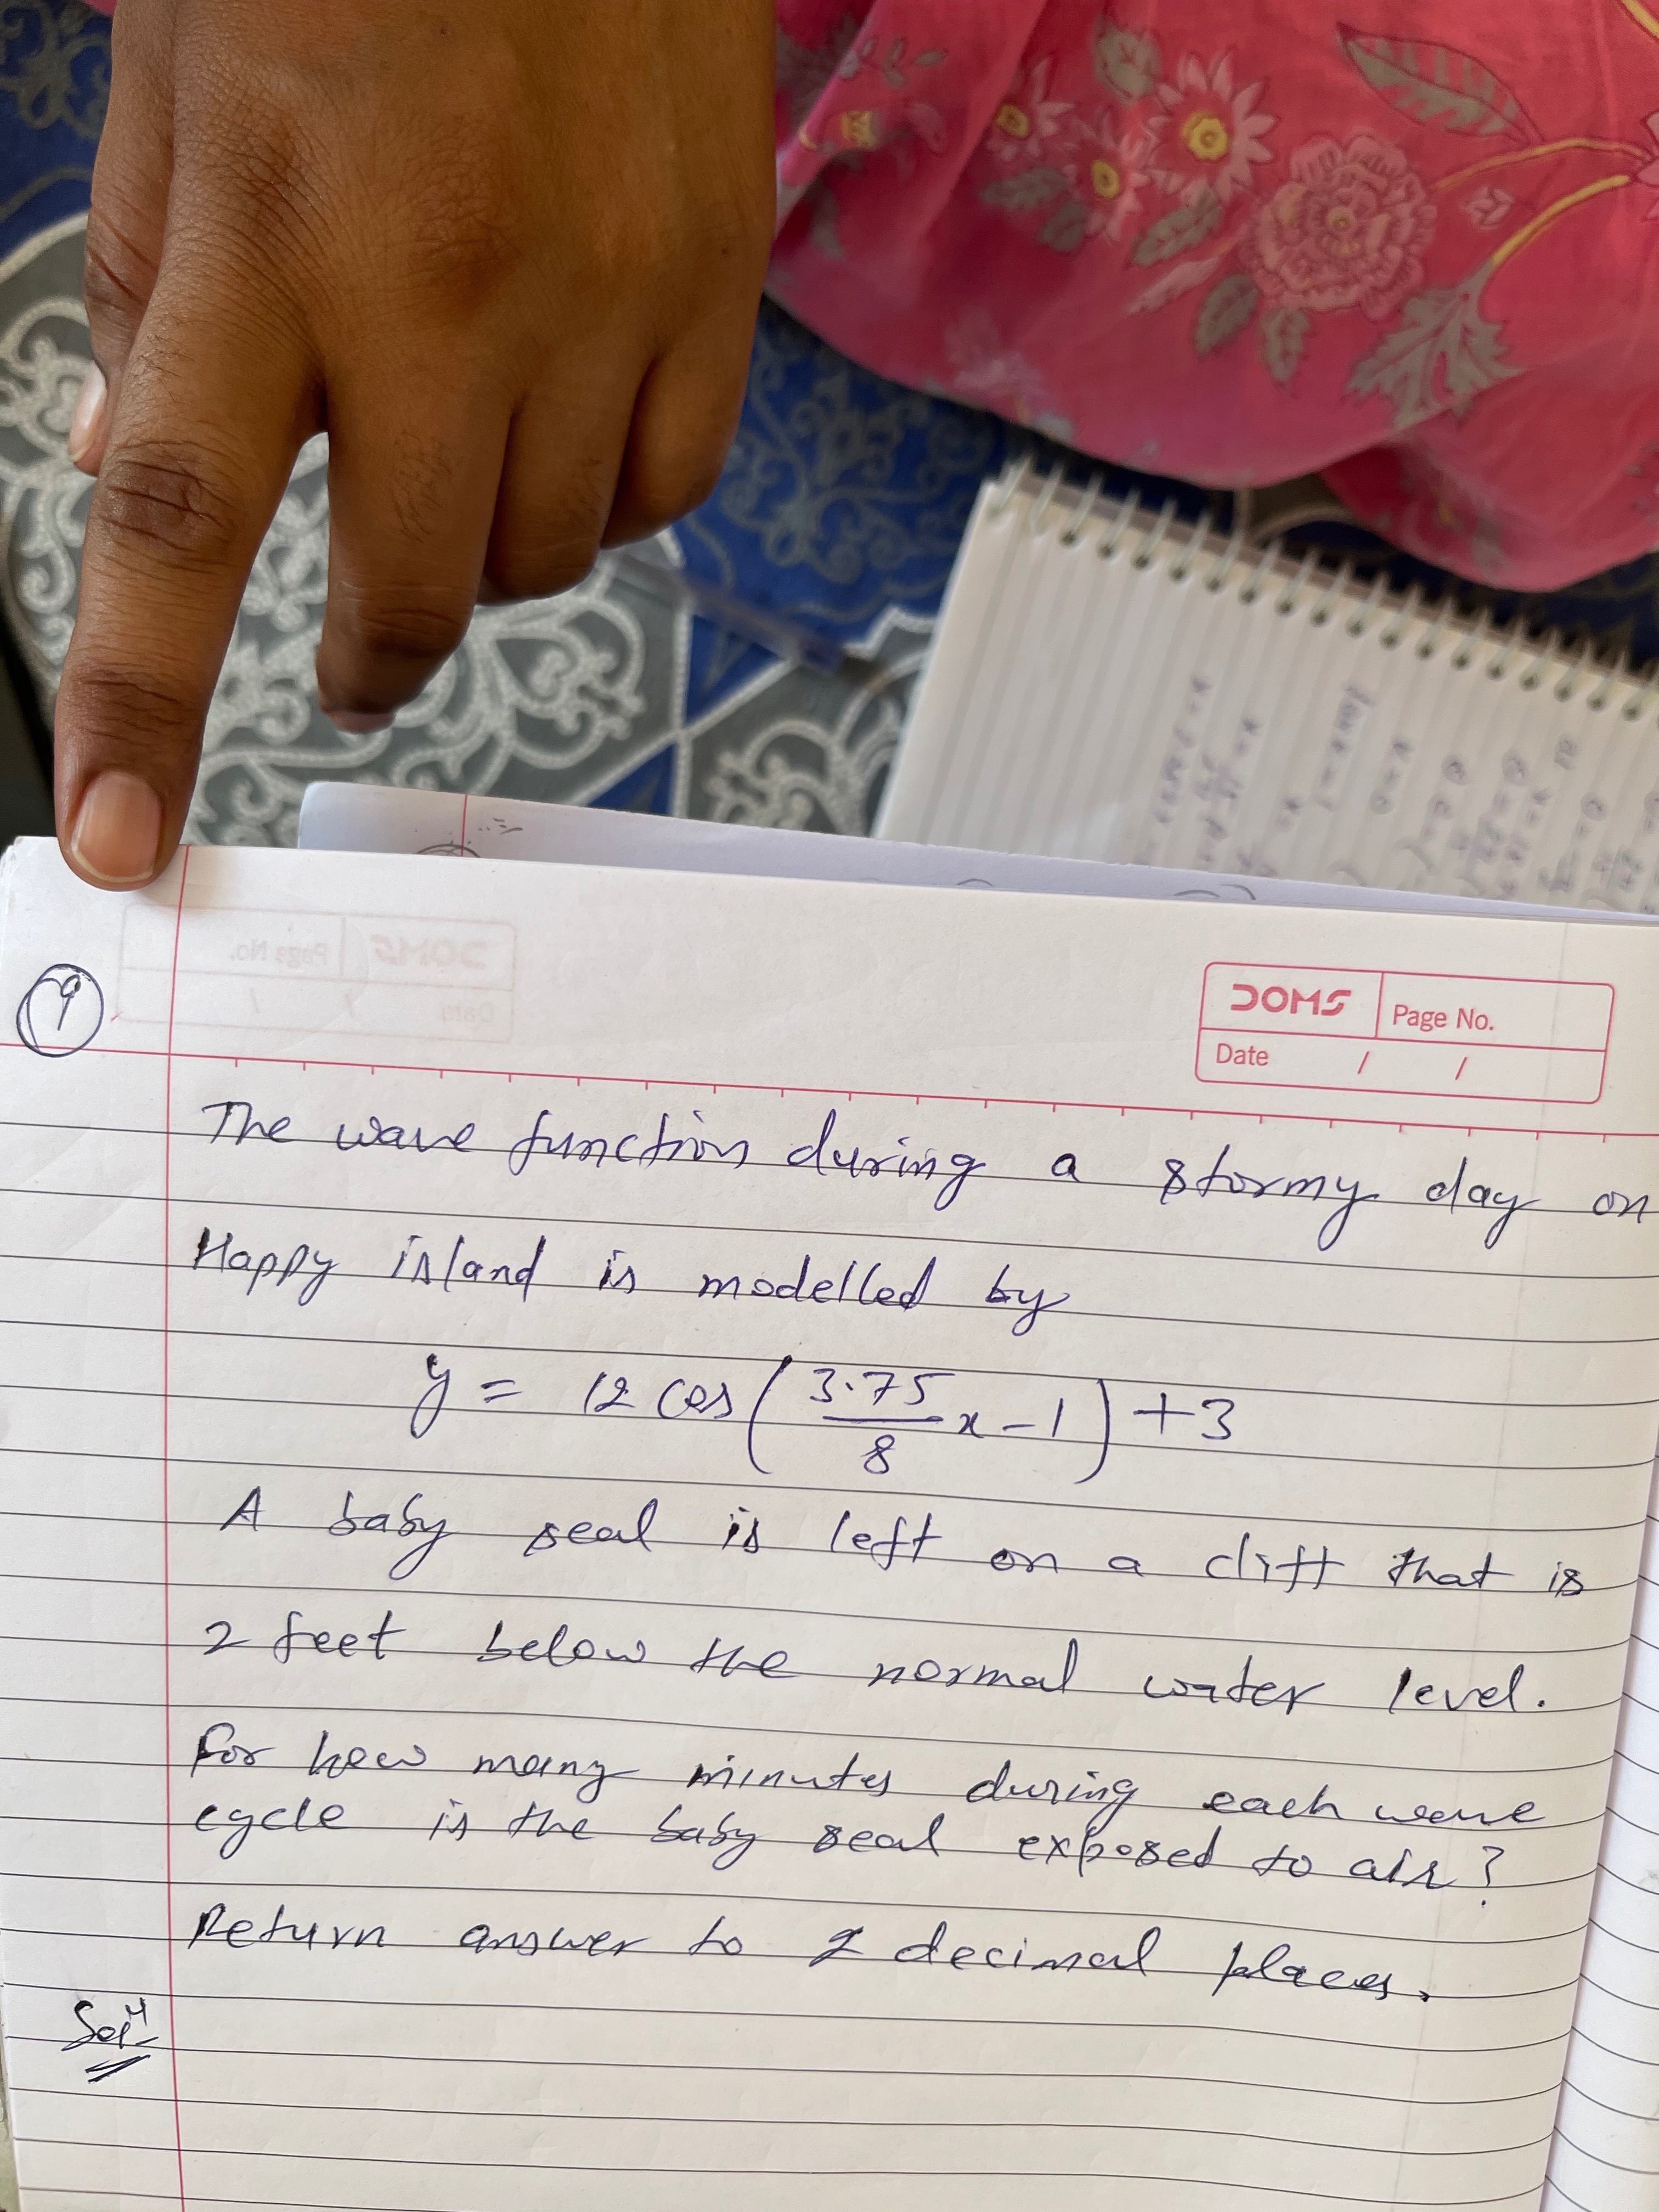 9
DOMS Page No.
Date / /
The wave function during a stormy day on
Happy island is modelled by
y = 12 cos( 3.75/8 x - 1 ) + 3
A baby seal is left on a cliff that is
2 feet below the normal water level.
For how many minutes during each wave
cycle is the baby seal exposed to air?
Return answer to 2 decimal places.
Solⁿ